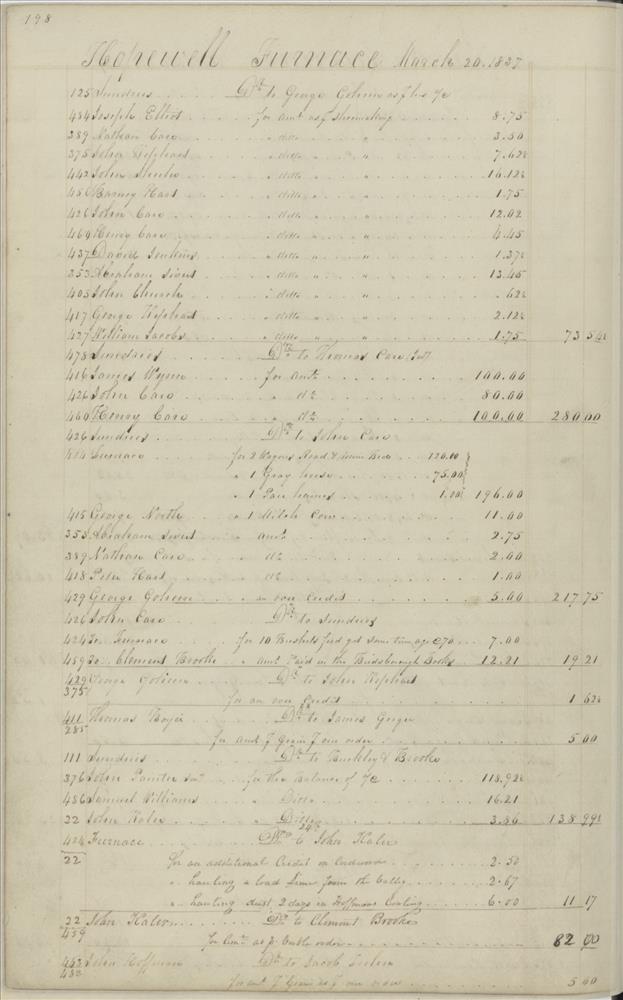 198
Hopewell Furnace March 20. 1837
125 Sundries Drs to George
484 Joseph Elliot for amt as p shoemaking 8.75
389 Nathan Care " ditto " " 3.50
378 John " ditto " " 7.62½
442 John " ditto " " 16.12½
450 Harvey Hart " ditto " " 1.75
426 John Care " ditto " " 12.02
460 Henry Care " ditto " " 4.45
437 David Jenkins " ditto " " 1.37½
353 Abraham Sivert " ditto " " 13.45
405 John Church " ditto " " .62½
417 George " ditto " " 2.12½
427 William Jacobs " ditto " " 1.75 73 54½
478 Sundries Drs to Thomas Care
416 James Wynn for amt 100.00
426 John Care " do 80.00
460 Henry Care " do 100.00 280.00
426 Sundries Drs to John Care
424 Furnace for 2 Wagons 120.00
" 1 Gray horse 75.00
" 1 Pair haimes 1.00 196.00
415 George North " 1 Milch Cow 11.00
353 Abraham Sivert " amt 2.75
389 Nathan Care " do 2.00
418 Peter Hart " do 1.00
429 George " an over Credit 5.00 217.75
426 John Care Dr to Sundries
424 To Furnace for 10 Bushels got some time ago @70 7.00
459 To Clement Brooke " amt Paid in the Birdsborough Books 12.21 19.21
429 George Dr to John
375 for an over Credit 1 62½
411 Thomas Boyer Dr to James Geiger
285 for amt p Geiger p order 5 00
111 Sundries Drs to Buckley & Brooke
376 John Painter for the Balance of 118.92½
486 Samuel Williams " Ditto 16.21
22 John Kaler " Ditto 3.86 138 99½
24th
424 Furnace Dr to John Kaler
22 for an additional Credit on Cordwood 2.50
" hauling a load from the Valley 2.67
" hauling dust 2 days in Hoffmans Coaling 6.00 11 17
22 John Kaler Dr to Clement Brooke
459 for amt as p order 82 00
442 John Hoffman Dr to Jacob
482 for amt p order 5 00